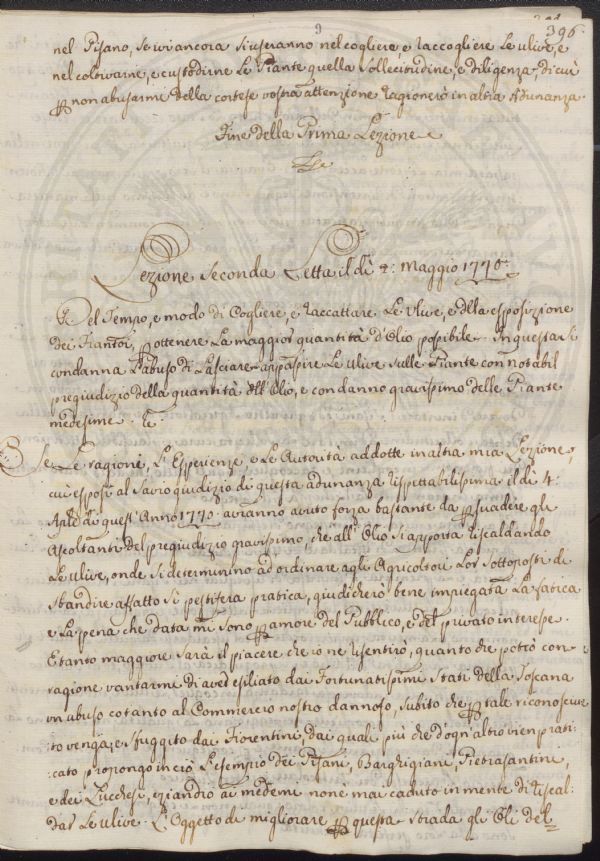 9
396
nel Pisano, se ivi ancora si useranno nel cogliere, e raccogliere le ulive, e
nel coltivarne, e custodirne le Piante quella sollecitudine, e diligenza, di cui
p non abusarmi della cortese vostra attenzione ragionerò in altra Adunanza.
Fine della Prima Lezione
Lezione Seconda Letta il dì 2: Maggio 1776.
Del Tempo, e modo di Cogliere, e raccattare le Ulive, e della esposizione
dei Frantoi, p ottenere la maggior quantità d'Olio possibile. In questa si
condanna l'abuso di lasciare appassire le ulive sulle Piante con notabil
pregiudizio della quantità dell'Olio, e con danno gravissimo delle Piante
medesime.
Se le ragioni, l'Esperienze, e le Autorità addotte in altra mia Lezione,
cui esposi al Savio giudizio di questa adunanza rispettabilissima il dì 4:
Aple di quest'Anno 1776. avranno avuto forza bastante da psuadere gli
Ascoltanti del pregiudizio gravissimo, che all'Olio si apporta riscaldando
le ulive, onde si determinino ad ordinare agli Agricoltori Lor sottoposti di
sbandire affatto sì pestifera pratica, giudicherò bene impiegata la fatica
e la pena che data mi sono p amore del Pubblico, e del privato interesse.
E tanto maggiore sarà il piacere che io ne risentirò, quanto che potrò con
ragione vantarmi di aver esiliato dai Fortunatissimi Stati della Toscana
un abuso cotanto al Commercio nostro dannoso, subito che p tale riconosciu-
to venga, e sfuggito dai Fiorentini, dai quali più che d'ogn'altro vien prati-
cato propongo in ciò l'esempio dei Pisani, Barghigiani, Pietrasantini,
e dei Lucchesi, eziandio ai medemi non è mai caduto in mente di riscal-
dar le ulive. L'Oggetto di migliorare p questa strada gli Oli del-